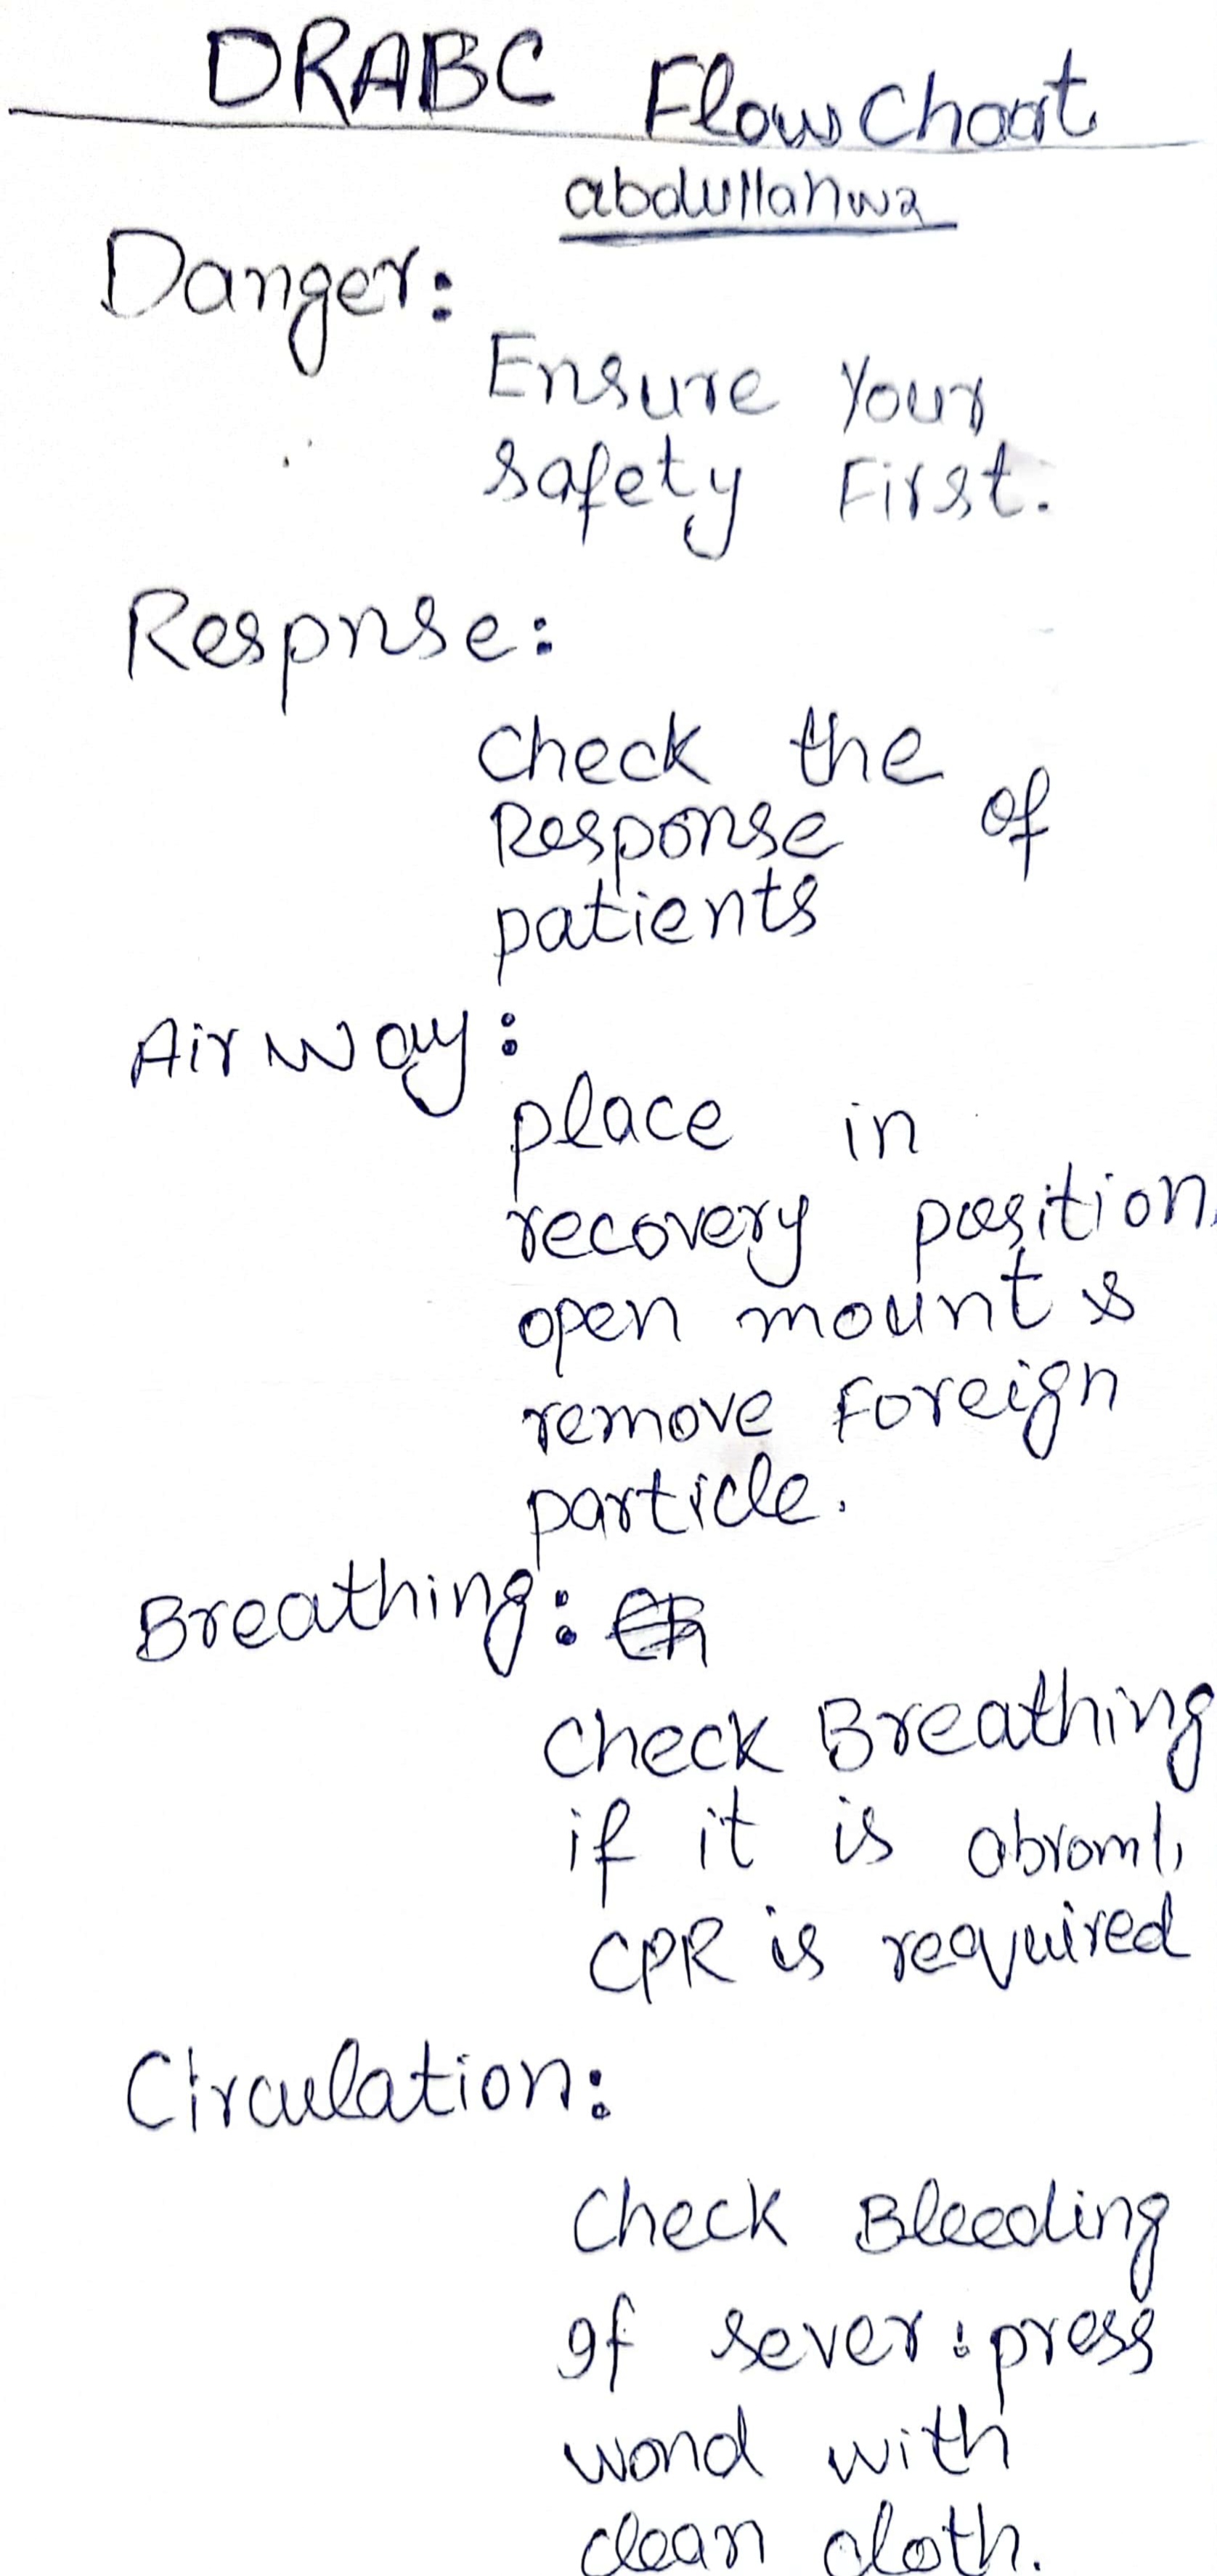 DRABC Flow Chart
abdullahwa
Danger:
Ensure Your
safety First.
Respnse:
check the
Response of
patients
Airway:
place in
recovery position,
open mount &
remove Foreign
particle.
Breathing:
check Breathing
if it is abroml,
CPR is required
Circulation:
Check Bleeding
If sever: press
wond with
clean cloth.